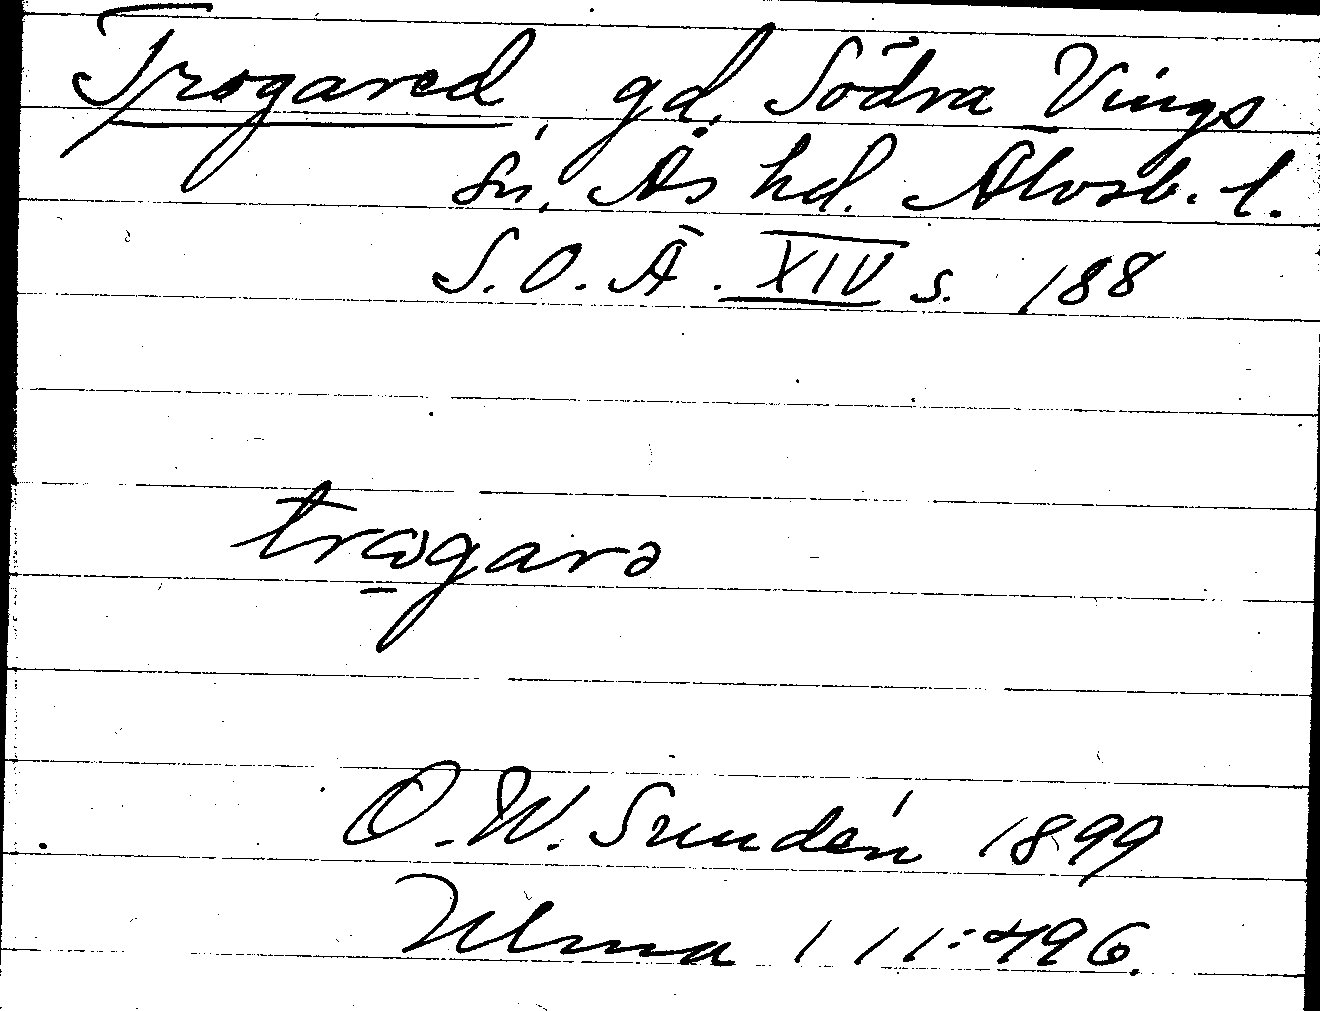 Trogared, gd. Södra Vings
sn, Ås hd. Älvsb. l.
S.O.Ä. XIV s. 188
trωgarə
O.W. Sundén 1899
Ulma 111:496.